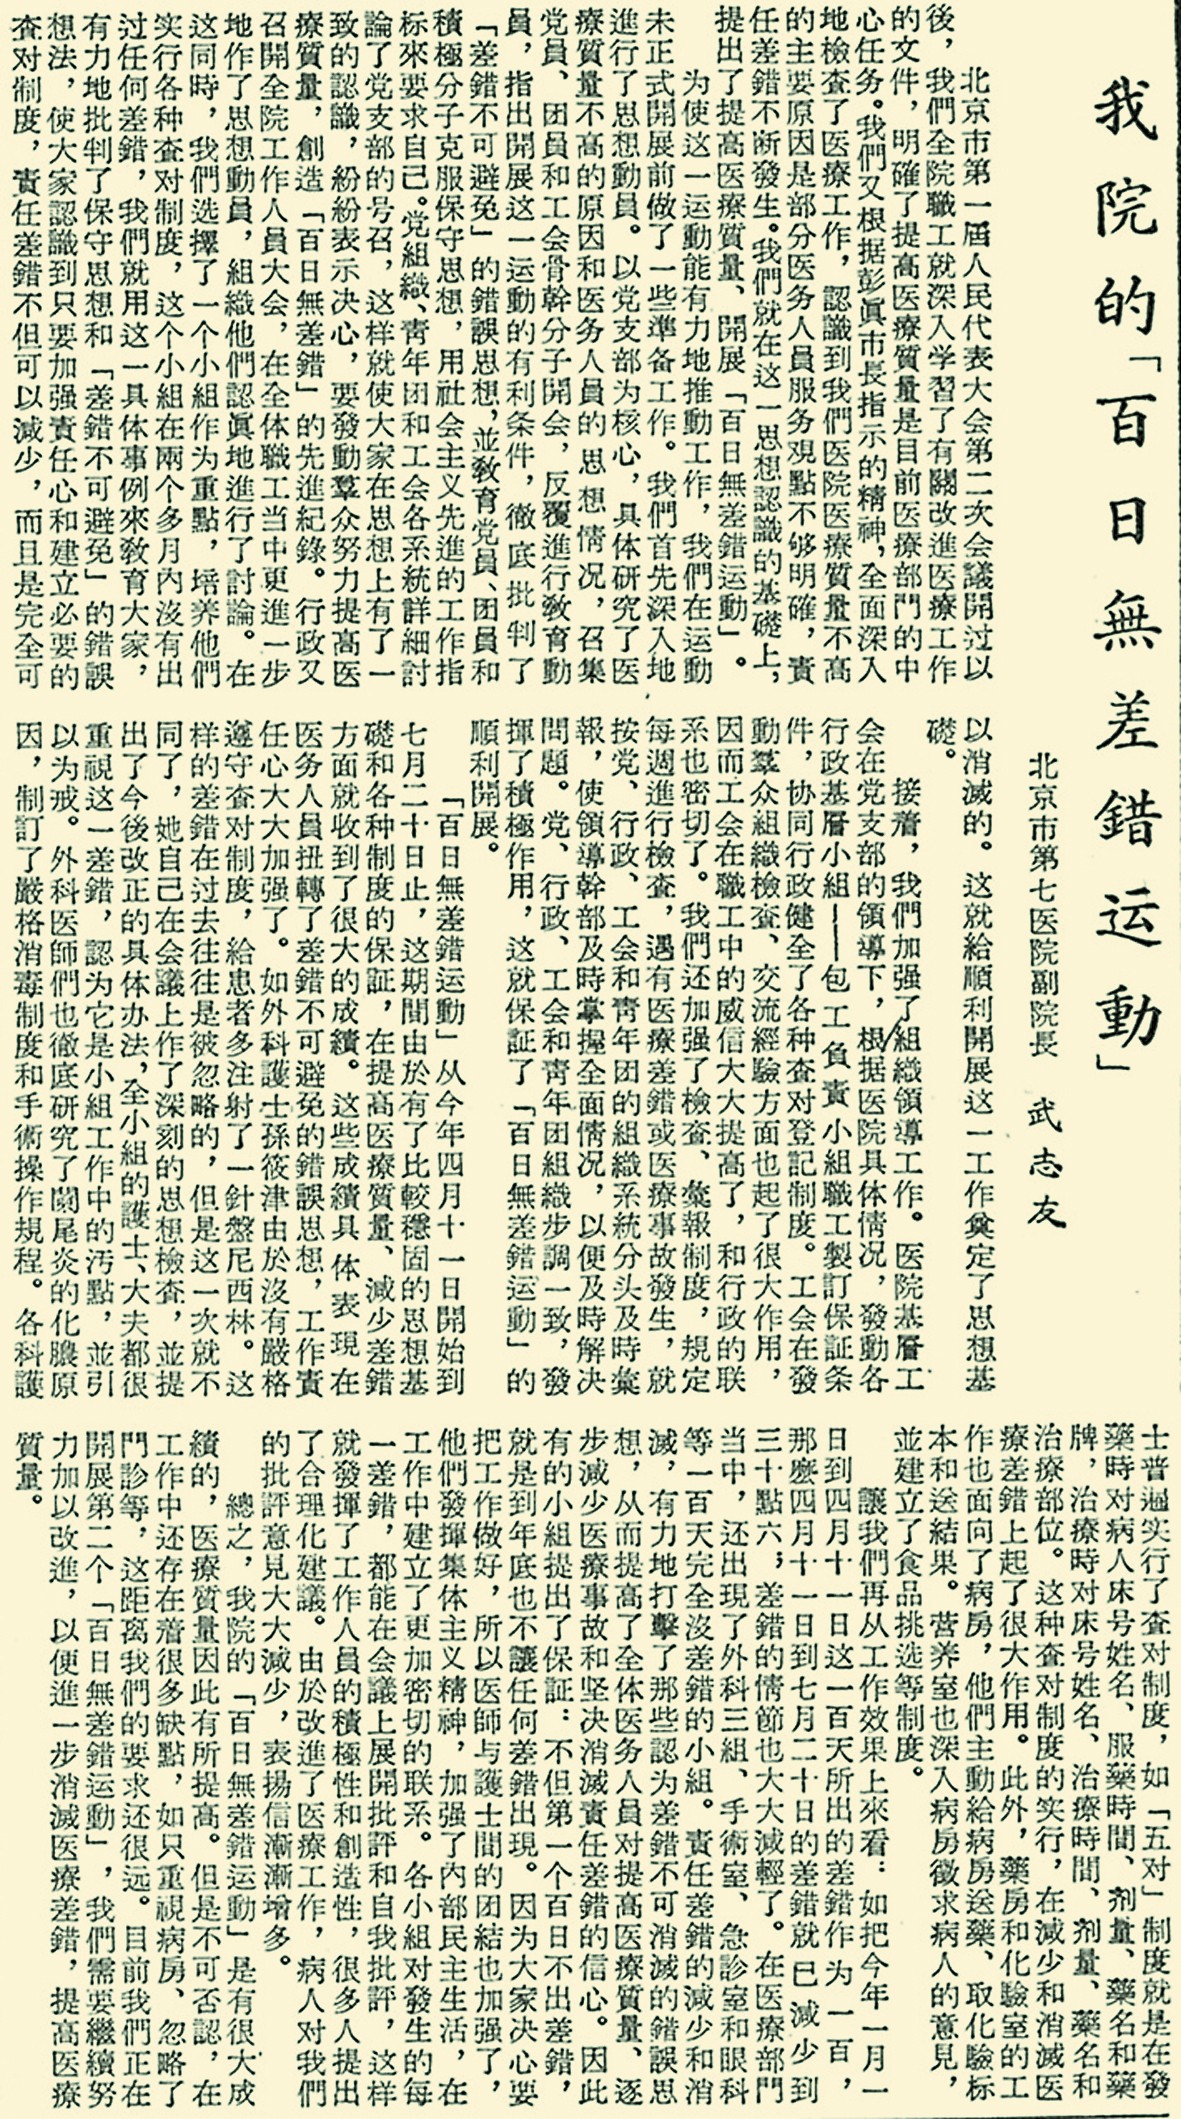 我院的「百日無差錯运動」
北京市第七医院副院長　武志友
北京市第一屆人民代表大会第二次会議開过以
後，我們全院職工就深入学習了有關改進医療工作
的文件，明確了提高医療質量是目前医療部門的中
心任务。我們又根据彭眞市長指示的精神，全面深入
地檢查了医療工作，認識到我們医院医療質量不高
的主要原因是部分医务人員服务观點不够明確，責
任差錯不断發生。我們就在这一思想認識的基礎上，
提出了提高医療質量、開展「百日無差錯运動」。
为使这一运動能有力地推動工作，我們在运動
未正式開展前做了一些準备工作。我們首先深入地
進行了思想動員。以党支部为核心，具体研究了医
療質量不高的原因和医务人員的思想情况，召集
党員、团員和工会骨幹分子開会，反覆進行敎育動
員，指出開展这一运動的有利条件，徹底批判了
「差錯不可避免」的錯誤思想，並敎育党員、团員和
積極分子克服保守思想，用社会主义先進的工作指
标來要求自己。党組織、靑年团和工会各系統詳細討
論了党支部的号召，这样就使大家在思想上有了一
致的認識，紛紛表示决心，要發動羣众努力提高医
療質量，創造「百日無差錯」的先進紀錄。行政又
召開全院工作人員大会，在全体職工当中更進一步
地作了思想動員，組織他們認眞地進行了討論。在
这同時，我們选擇了一个小組作为重點，培养他們
实行各种查对制度，这个小組在兩个多月內沒有出
过任何差錯，我們就用这一具体事例來敎育大家，
有力地批判了保守思想和「差錯不可避免」的錯誤
想法，使大家認識到只要加强責任心和建立必要的
查对制度，責任差錯不但可以減少，而且是完全可
以消滅的。这就給順利開展这一工作奠定了思想基
礎。
接着，我們加强了組織領導工作。医院基層工
会在党支部的領導下，根据医院具体情况，發動各
行政基層小組——包工負責小組職工製訂保証条
件，协同行政健全了各种查对登記制度。工会在發
動羣众組織檢查、交流經驗方面也起了很大作用，
因而工会在職工中的威信大大提高了，和行政的联
系也密切了。我們还加强了檢查、彙報制度，規定
每週進行檢查，遇有医療差錯或医療事故發生，就
按党、行政、工会和靑年团的組織系統分头及時彙
報，使領導幹部及時掌握全面情况，以便及時解决
問題。党、行政、工会和靑年团組織步調一致，發
揮了積極作用，这就保証了「百日無差錯运動」的
順利開展。
「百日無差錯运動」从今年四月十一日開始到
七月二十日止，这期間由於有了比較穩固的思想基
礎和各种制度的保証，在提高医療質量、減少差錯
方面就收到了很大的成績。这些成績具体表現在
医务人員扭轉了差錯不可避免的錯誤思想，工作責
任心大大加强了。如外科護士孫筱津由於沒有嚴格
遵守查对制度，給患者多注射了一針盤尼西林。这
样的差錯在过去往往是被忽略的，但是这一次就不
同了，她自己在会議上作了深刻的思想檢查，並提
出了今後改正的具体办法，全小組的護士、大夫都很
重視这一差錯，認为它是小組工作中的汚點，並引
以为戒。外科医師們也徹底研究了闌尾炎的化膿原
因，制訂了嚴格消毒制度和手術操作規程。各科護
士普遍实行了查对制度，如「五对」制度就是在發
藥時对病人床号姓名、服藥時間、剂量、藥名和藥
牌，治療時对床号姓名、治療時間、剂量、藥名和
治療部位。这种查对制度的实行，在減少和消滅医
療差錯上起了很大作用。此外，藥房和化驗室的工
作也面向了病房，他們主動給病房送藥、取化驗标
本和送結果。营养室也深入病房徵求病人的意見，
並建立了食品挑选等制度。
讓我們再从工作效果上來看：如把今年一月一
日到四月十一日这一百天所出的差錯作为一百，
那麽四月十一日到七月二十日的差錯就已減少到
三十點六；差錯的情節也大大減輕了。在医療部門
当中，还出現了外科三組、手術室、急診室和眼科
等一百天完全沒差錯的小組。責任差錯的減少和消
滅，有力地打擊了那些認为差錯不可消滅的錯誤思
想，从而提高了全体医务人員对提高医療質量、逐
步減少医療事故和坚决消滅責任差錯的信心。因此
有的小組提出了保証：不但第一个百日不出差錯，
就是到年底也不讓任何差錯出現。因为大家决心要
把工作做好，所以医師与護士間的团結也加强了，
他們發揮集体主义精神，加强了內部民主生活，在
工作中建立了更加密切的联系。各小組对發生的每
一差錯，都能在会議上展開批評和自我批評，这样
就發揮了工作人員的積極性和創造性，很多人提出
了合理化建議。由於改進了医療工作，病人对我們
的批評意見大大減少，表揚信漸漸增多。
總之，我院的「百日無差錯运動」是有很大成
績的，医療質量因此有所提高。但是不可否認，在
工作中还存在着很多缺點，如只重視病房、忽略了
門診等，这距离我們的要求还很远。目前我們正在
開展第二个「百日無差錯运動」，我們需要繼續努
力加以改進，以便進一步消滅医療差錯，提高医療
質量。